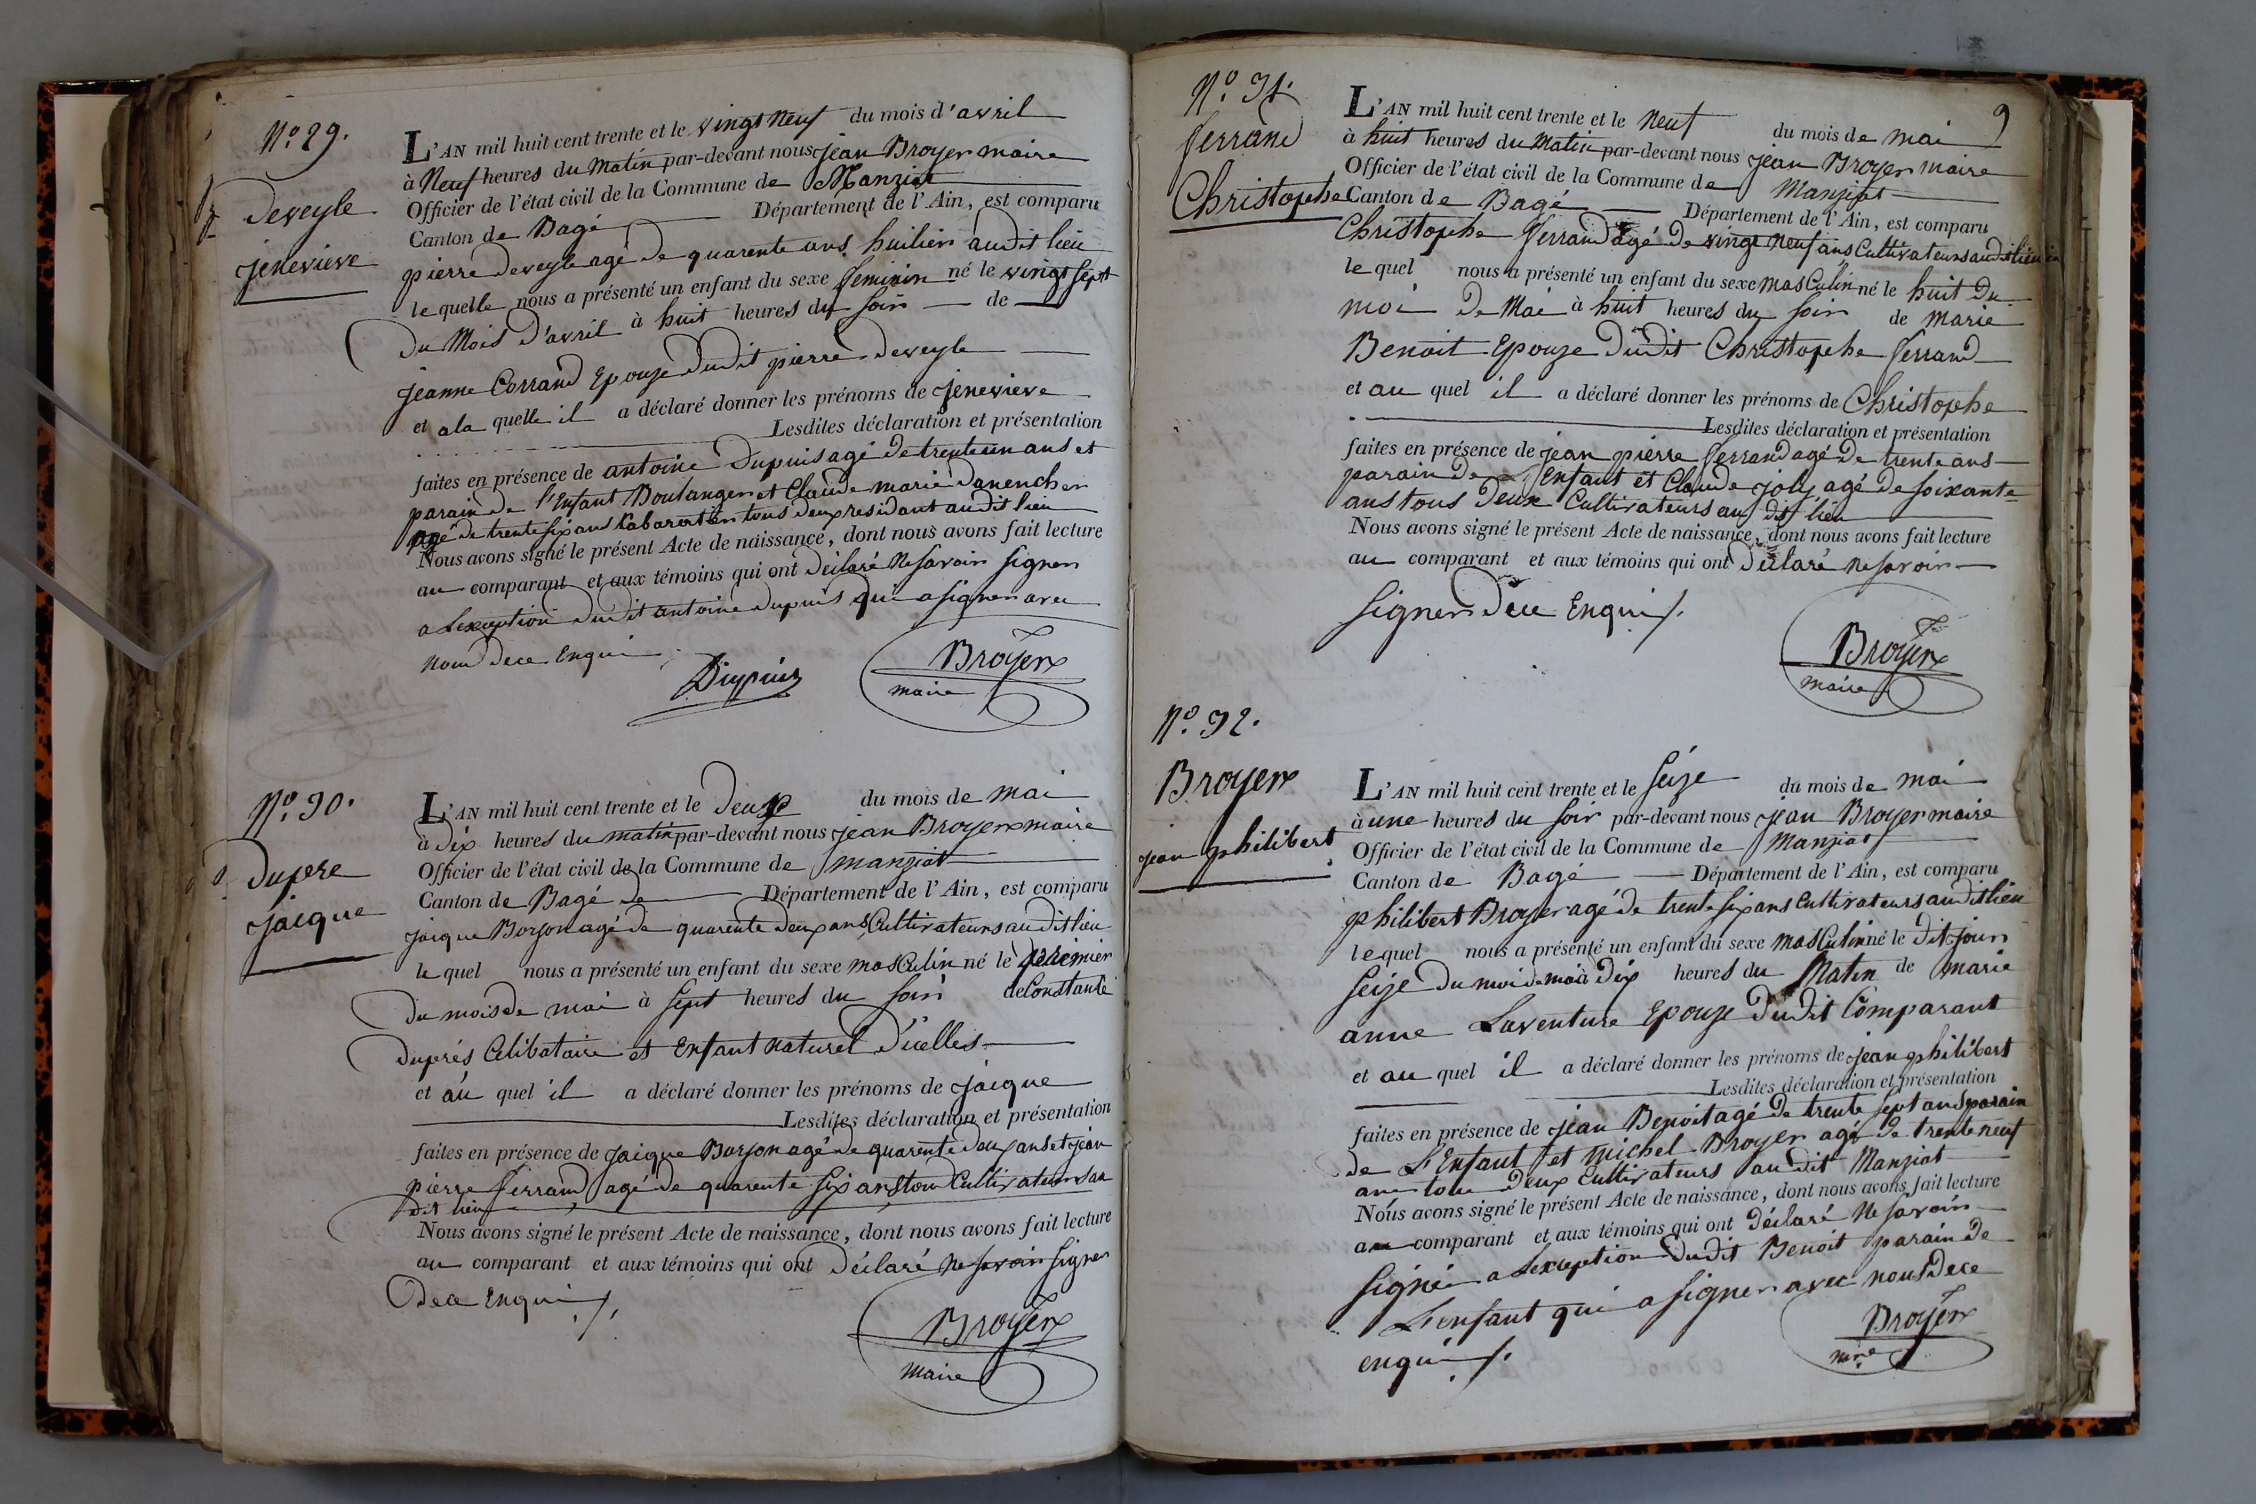 N.º 29.
Deveyle
jenevieve
L'AN mil huit cent trente et le vingt neuf du mois d'avril
à Neuf heures du Matin par-devant nous jean Broyer maire
Officier de l'état civil de la Commune de Manziat
Canton de Bagé Département de l'Ain, est comparu
pierre deveyle agé de quarente ans huilier audit lieu
le quelle nous a présenté un enfant du sexe feminin né le vingt sept
du Mois d'avril à huit heures du soir de
jeanne Corrand Epouze dudit pierre deveyle
et a la quelle il a déclaré donner les prénoms de jenevieve
Lesdites déclaration et présentation
faites en présence de antoine Dupuis agé de trente un ans et
parain de l'Enfant Boulanger et Claude marie Danencher
agé de trente six ans Cabaretier tous deux residant audit lieu
Nous avons signé le présent Acte de naissance, dont nous avons fait lecture
au comparant et aux témoins qui ont déclaré Ne savoir signer
a Lexception dudit antoine dupuis qui a signer avec
nous dece Enqui
Dupuis
Broyer
maire
N.º 30.
Dupere
jacque
L'AN mil huit cent trente et le deux du mois de mai
à dix heures du matin par-devant nous jean Broyer maire
Officier de l'état civil de la Commune de manziat
Canton de Bagé de Département de l'Ain, est comparu
jacque Borjon agé de quarente deux ans Cultivateurs audit lieu
le quel nous a présenté un enfant du sexe masculin né le premier
du mois de mai à sept heures du soir de Constance
duprés Célibataire et Enfant naturel d'icelles
et au quel il a déclaré donner les prénoms de jacque
Lesdites déclaration et présentation
faites en présence de jacque Borjon agé de quarente deux ans et jean
pierre ferrand agé de quarente six ans tous Cultivateurs au
dit lieu
Nous avons signé le présent Acte de naissance, dont nous avons fait lecture
au comparant et aux témoins qui ont déclaré Ne savoir signer
dece Enqui
Broyer
maire
9
N.º 31.
ferrand
Christophe
L'AN mil huit cent trente et le Neuf du mois de mai
à huit heures du Matin par-devant nous jean Broyer maire
Officier de l'état civil de la Commune de Manziat
Canton de Bagé Département de l'Ain, est comparu
Christophe ferrand agé de vingt neuf ans Cultivateurs audit lieu
le quel nous a présenté un enfant du sexe masculin né le huit du
moi de Mai à huit heures du soir de marie
Benoit Epouze dudit Christophe ferrand
et au quel il a déclaré donner les prénoms de Christophe
Lesdites déclaration et présentation
faites en présence de jean pierre ferrand agé de trente ans
parain de l'Enfant et Claude joly agé de soixante
ans tous deux Cultivateurs au dit lieu
Nous avons signé le présent Acte de naissance, dont nous avons fait lecture
au comparant et aux témoins qui ont déclaré ne savoir
signer dece Enqui
Broyer
maire
N.º 32.
Broyer
jean philibert
L'AN mil huit cent trente et le seize du mois de mai
à une heures du soir par-devant nous jean Broyer maire
Officier de l'état civil de la Commune de Manziat
Canton de Bagé Département de l'Ain, est comparu
philibert Broyer agé de trente six ans Cultivateurs audit lieu
le quel nous a présenté un enfant du sexe masculin né le dit jour
seize du moi de mai à dix heures du Matin de marie
anne Laventure Epouze dudit Comparant
et au quel il a déclaré donner les prénoms de jean philibert
Lesdites déclaration et présentation
faites en présence de jean Benoit agé de trente sept ans parain
de L'Enfant et michel Broyer agé de trente neuf
ans tous deux Cultivateurs audit Manziat
Nous avons signé le présent Acte de naissance, dont nous avons fait lecture
au comparant et aux témoins qui ont déclaré Ne savoir
signér a Lexception dudit Benoit parain de
L'enfant qui a signer avec nous dece
enqui
Broyer
mre